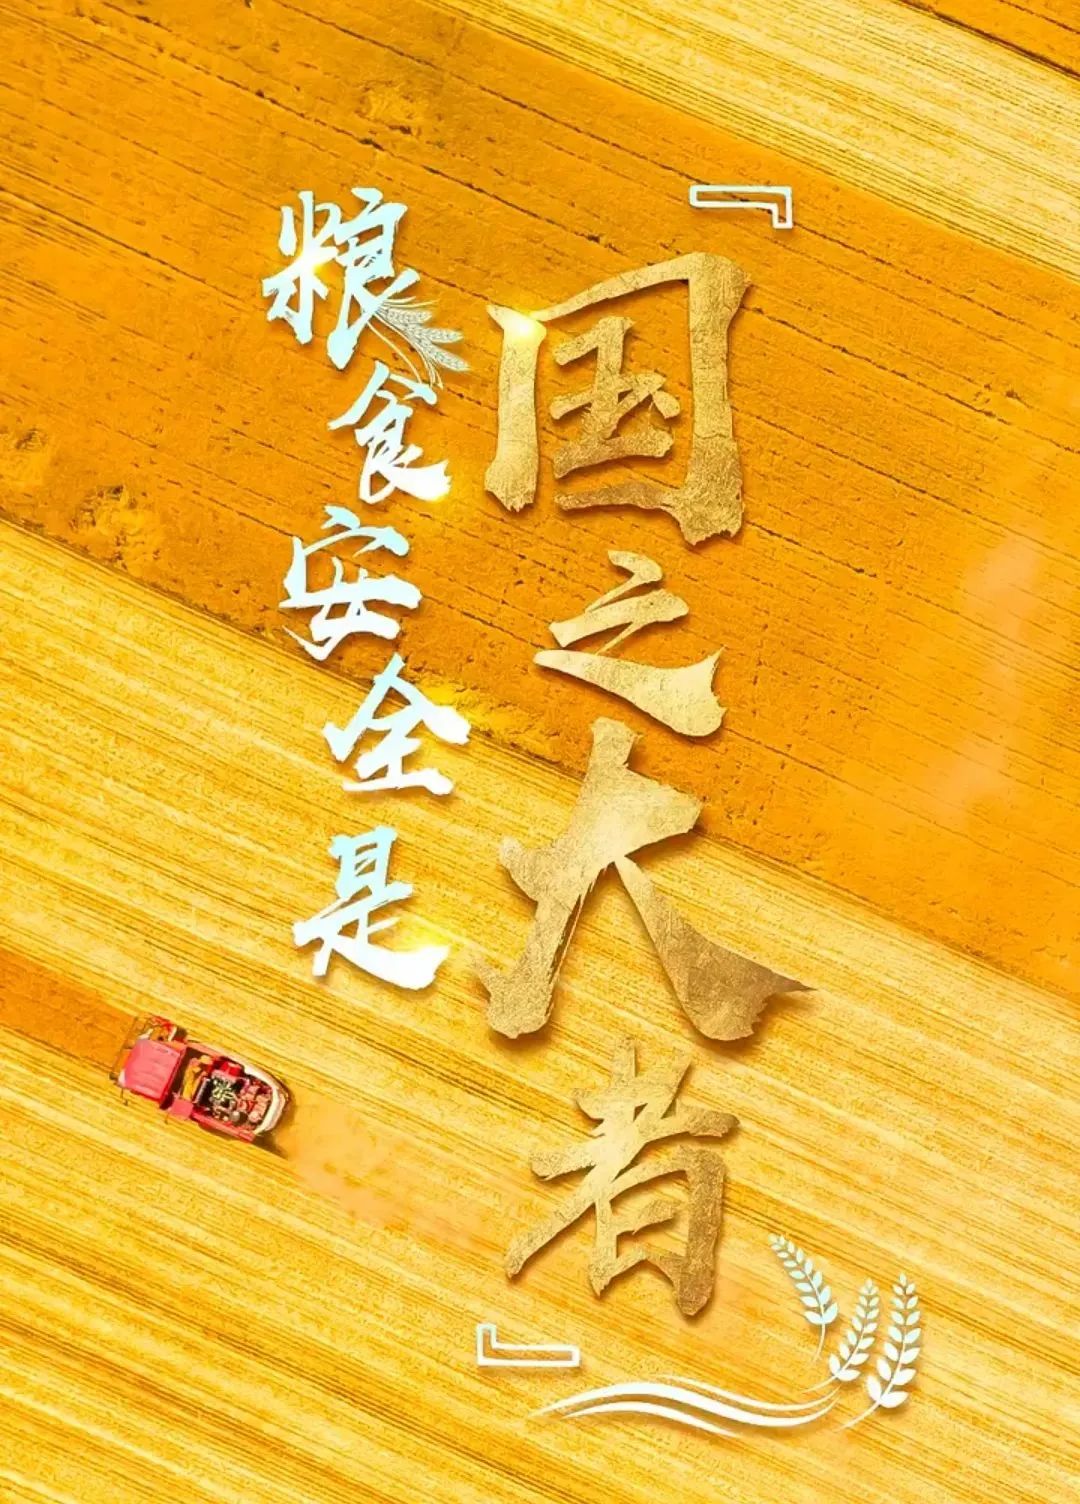 粮食安全是
『国之大者』